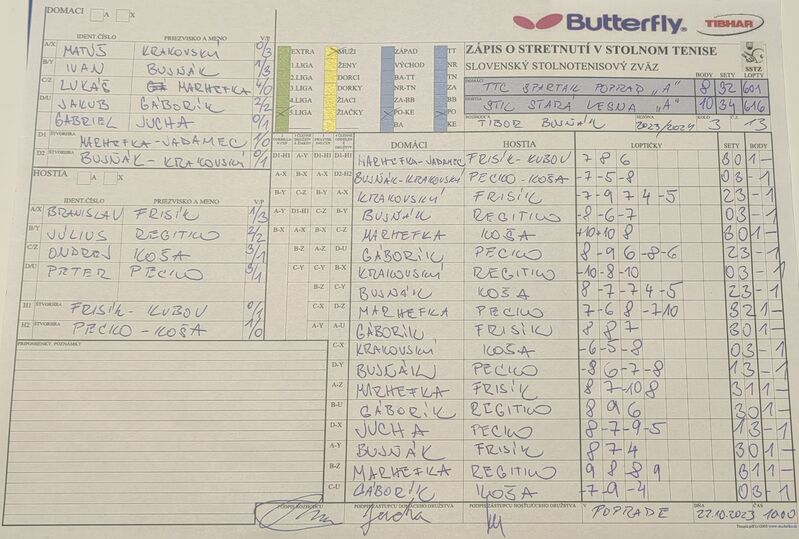 DOMÁCI A X
Butterfly. TIBHAR
IDENT.ČÍSLO PRIEZVISKO A MENO V/P
A/X MATÚŠ KRAKOVSKÝ 0/3
B/Y IVAN BUJŇÁK 1/3
C/Z LUKÁČ MARHEFKA 4/0
D/U JAKUB GÁBORÍK 2/2
GABRIEL JUCHA 0/1
D1 ŠTVORHRA MARHEFKA-JADAMEC 1/0
D2 ŠTVORHRA BUJŇÁK-KRAKOVSKÝ 0/1
EXTRA MUŽI ZÁPAD TT
1.LIGA ŽENY VÝCHOD NR
2.LIGA DORCI BA-TT TN
3.LIGA DORKY NR-TN ZA
4.LIGA ŽIACI ZA-BB BB
5.LIGA ŽIAČKY PO-KE PO
BA KE
ZÁPIS O STRETNUTÍ V STOLNOM TENISE
SLOVENSKÝ STOLNOTENISOVÝ ZVÄZ
SSTZ
BODY SETY LOPTY
DOMÁCI TTC SPARTAK POPRAD "A" 8 32 601
HOSTIA STK STARÁ LESNÁ "A" 10 34 616
TIBOR BUJŇÁK 2023/2024 KOLO 3 Č.Z. 13
HOSTIA A X
IDENT.ČÍSLO PRIEZVISKO A MENO V/P
A/X BRANISLAV FRISÍK 1/3
B/Y JÚLIUS REGITKO 2/2
C/Z ONDREJ KOŠA 3/1
D/U PETER PECKO 3/1
H1 ŠTVORHRA FRISÍK-KUBOV 0/1
H2 ŠTVORHRA PECKO-KOŠA 1/0
PRIPOMIENKY, POZNÁMKY
DOMÁCI HOSTIA LOPTIČKY SETY BODY
MARHEFKA-JADAMEC FRISÍK-KUBOV 7 8 6 3 0 1 -
BUJŇÁK-KRAKOVSKÝ PECKO-KOŠA -7 -5 -8 0 3 - 1
KRAKOVSKÝ FRISÍK -7 -9 7 4 -5 2 3 - 1
BUJŇÁK REGITKO -8 -6 -7 0 3 - 1
MARHEFKA KOŠA +10 +10 8 3 0 1 -
GÁBORÍK PECKO 8 -9 6 -8 -6 2 3 - 1
KRAKOVSKÝ REGITKO -10 -8 -10 0 3 - 1
BUJŇÁK KOŠA 8 -7 -7 4 -5 2 3 - 1
MARHEFKA PECKO 7 -6 8 -7 10 3 2 1 -
GÁBORÍK FRISÍK 8 8 7 3 0 1 -
C-X KRAKOVSKÝ KOŠA -6 -5 -8 0 3 - 1
D-Y BUJŇÁK PECKO -8 6 -7 -8 1 3 - 1
A-Z MARHEFKA FRISÍK 8 7 -10 8 3 1 1 -
B-U GÁBORÍK REGITKO 8 9 6 3 0 1 -
D-X JUCHA PECKO 8 -7 -9 -5 1 3 - 1
A-Y BUJŇÁK FRISÍK 8 7 4 3 0 1 -
B-Z MARHEFKA REGITKO 9 8 8 9 3 1 1 -
C-U GÁBORÍK KOŠA -7 -9 -4 0 3 - 1
PODPIS ROZHODCU PODPIS ZÁSTUPCU DOMÁCEHO DRUŽSTVA PODPIS ZÁSTUPCU HOSŤUJÚCEHO DRUŽSTVA V POPRADE DŇA 22.10.2023 ČAS 10.00
Jucha